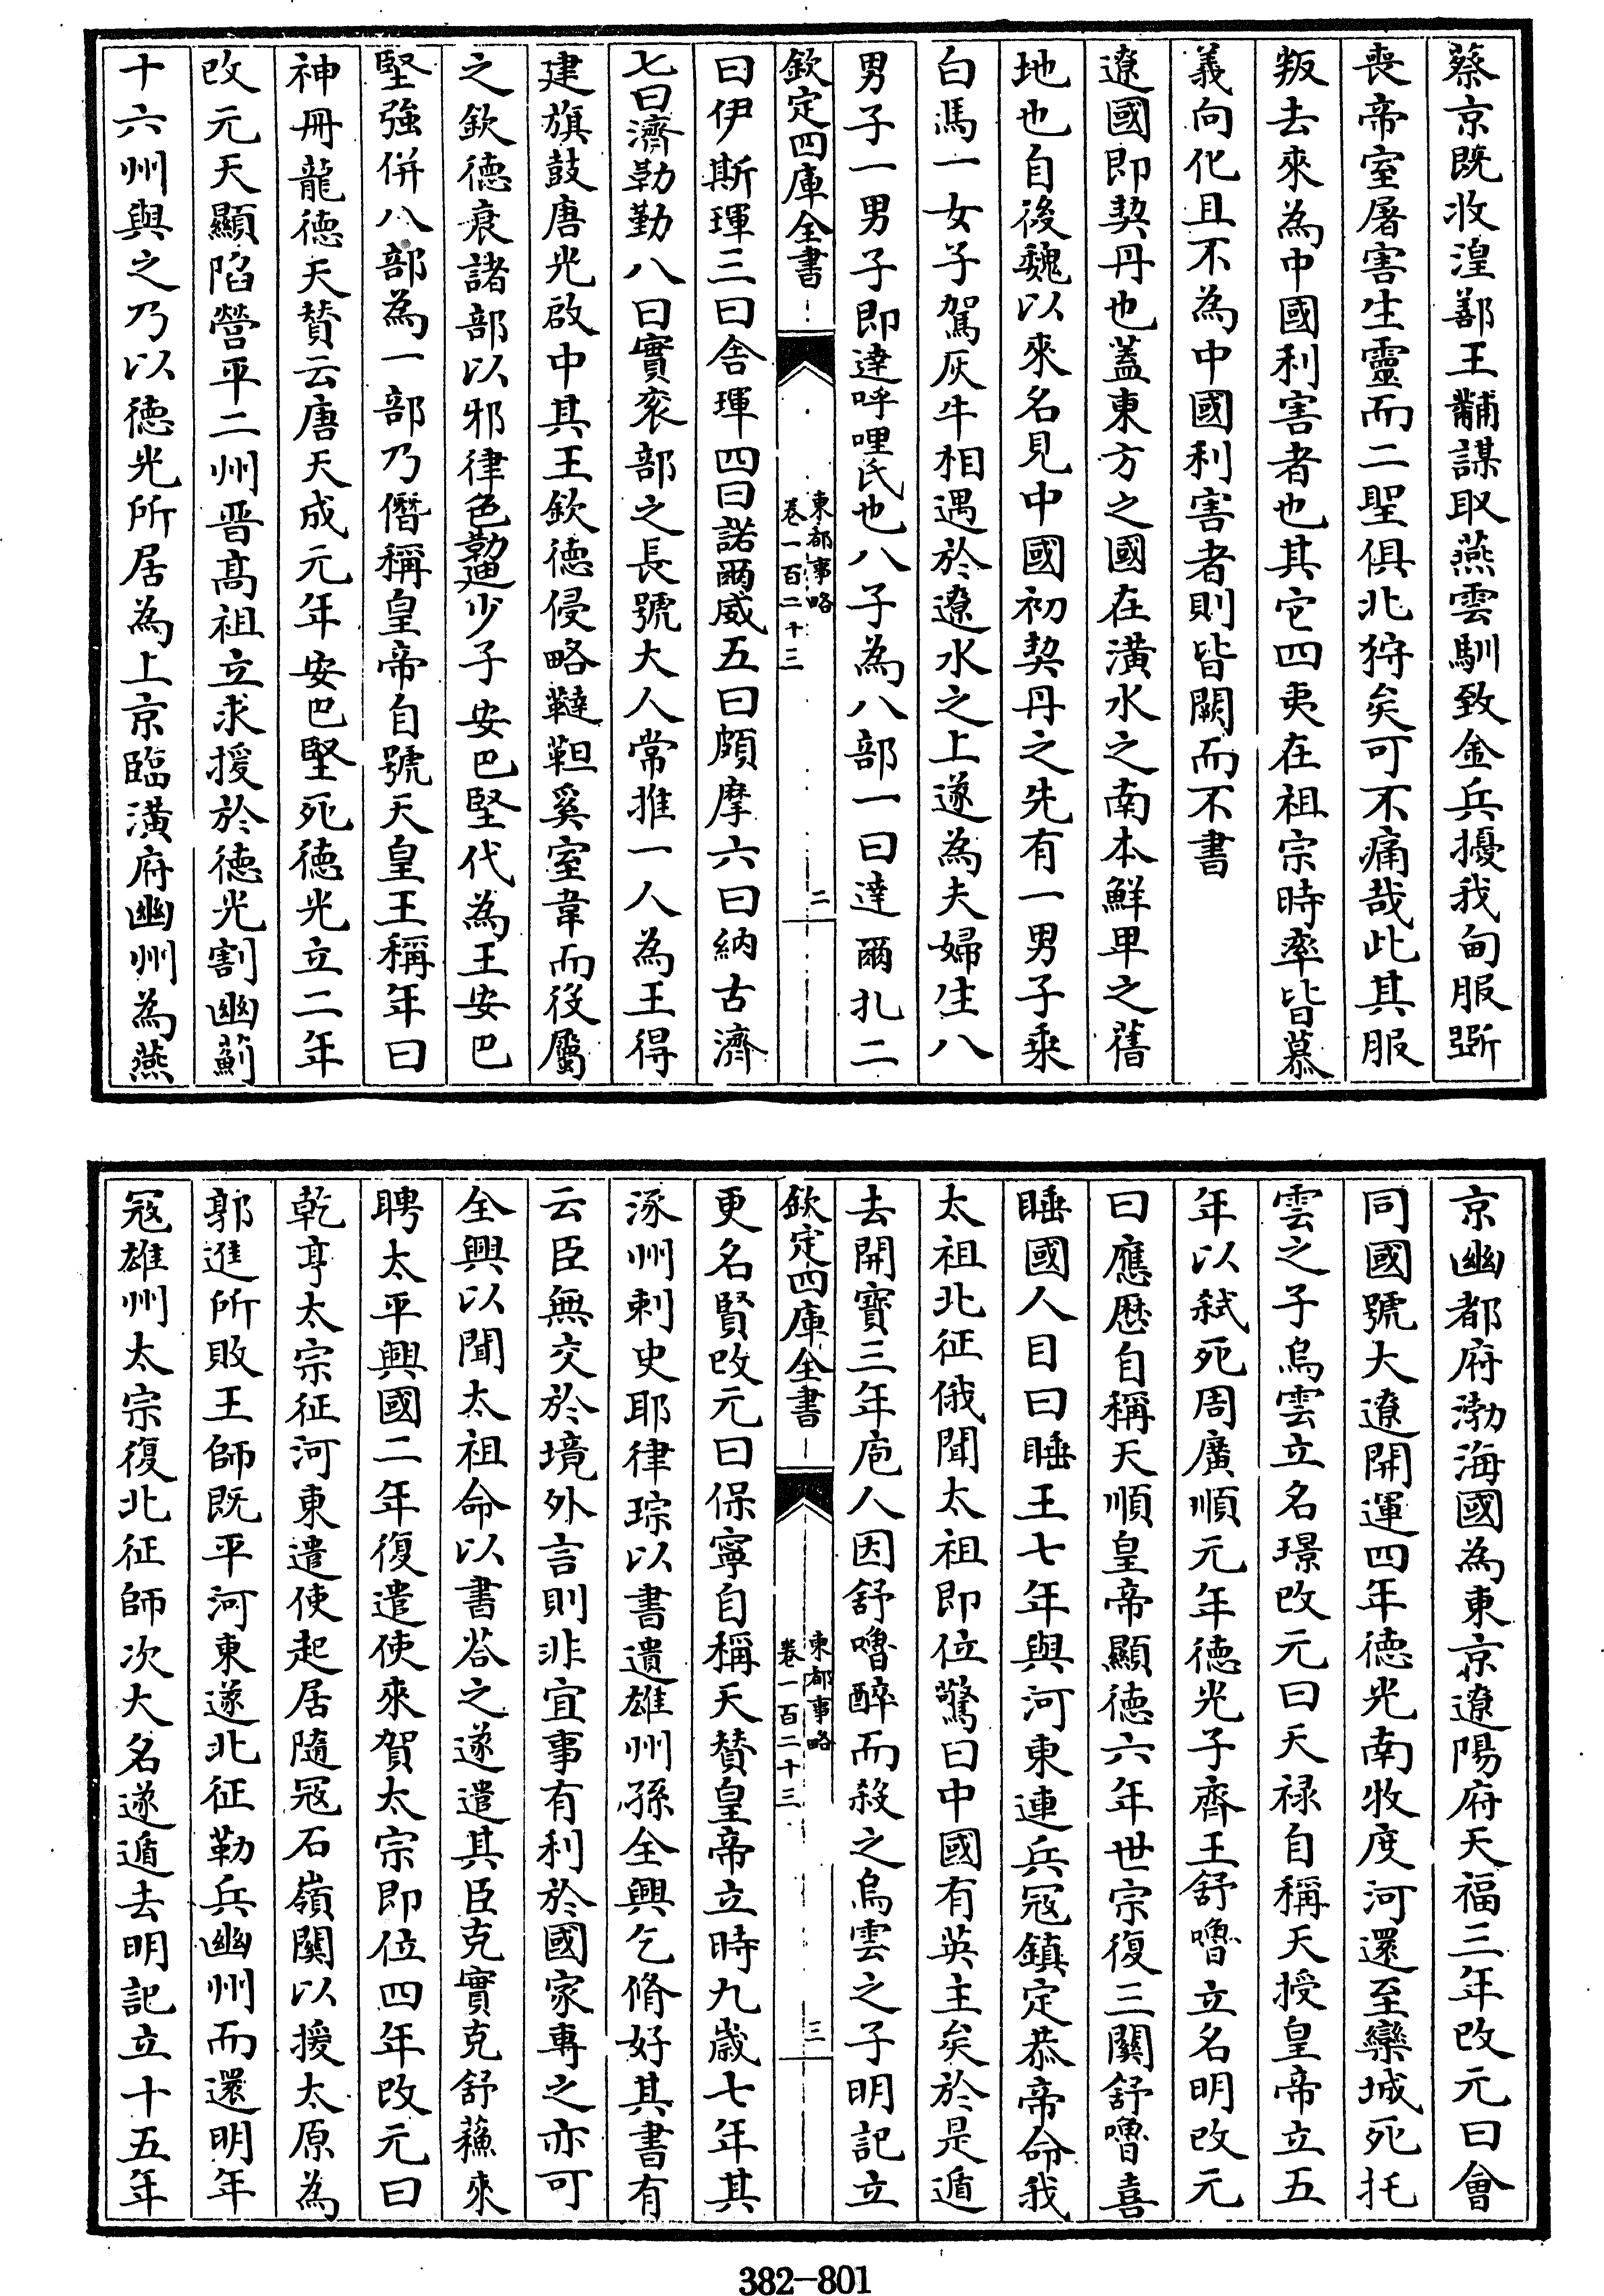 蔡京既收湟鄯王黼謀取燕雲馴致金兵擾我甸服斲
喪帝室屠害生靈而二聖俱北狩矣可不痛哉此其服
叛去來為中國利害者也其它四夷在祖宗時率皆慕
義向化且不為中國利害者則皆闕而不書
遼國即契丹也蓋東方之國在潢水之南本鮮卑之舊
地也自後魏以來名見中國初契丹之先有一男子乗
白馬一女子駕灰牛相遇於遼水之上遂為夫婦生八
男子一男子即達呼哩氏也八子為八部一曰達爾扎二
欽定四庫全書
東都事略
卷一百二十三
二
曰伊斯琿三曰舎琿四曰諾爾威五曰頗摩六曰納古濟
七曰濟勒勤八曰實衮部之長號大人常推一人為王得
建旗鼓唐光啟中其王欽德侵略韃靼奚室韋而役屬
之欽德衰諸部以邪律色勒迪少子安巴堅代為王安巴
堅強併八部為一部乃僭稱皇帝自號天皇王稱年曰
神冊龍德天贊云唐天成元年安巴堅死德光立二年
改元天顯陷營平二州晋髙祖立求援於德光割幽薊
十六州與之乃以德光所居為上京臨潢府幽州為燕
京幽都府渤海國為東京遼陽府天福三年改元曰會
同國號大遼開運四年德光南牧度河還至欒城死托
雲之子烏雲立名璟改元曰天禄自稱天授皇帝立五
年以弑死周廣順元年德光子齊王舒嚕立名明改元
曰應歴自稱天順皇帝顯德六年世宗復三闗舒嚕喜
睡國人目曰睡王七年與河東連兵冦鎮定恭帝命我
太祖北征俄聞太祖即位驚曰中國有英主矣於是遁
去開寳三年庖人因舒嚕醉而殺之烏雲之子明記立
欽定四庫全書
東都事略
卷一百二十三
三
更名賢改元曰保寧自稱天贊皇帝立時九歳七年其
涿州剌史耶律琮以書遺雄州孫全興乞脩好其書有
云臣無交於境外言則非宜事有利於國家專之亦可
全興以聞太祖命以書荅之遂遣其臣克實克舒蘓來
聘太平興國二年復遣使來賀太宗即位四年改元曰
乾亨太宗征河東遣使起居隨冦石嶺闗以援太原為
郭進所敗王師既平河東遂北征勒兵幽州而還明年
冦雄州太宗復北征師次大名遂遁去明記立十五年
382-801